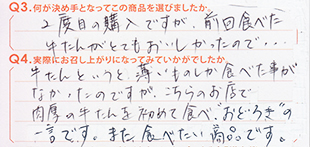 Q3.何が決め手となってこの商品を選びましたか。
2度目の購入ですが、前回食べた
牛たんがとてもおいしかったので・・・
Q4.実際にお召し上がりになってみていかがでしたか。
牛たんというと、薄いものしか食べた事が
なかったのですが、こちらのお店で
肉厚の牛たんを初めて食べ“おどろき”の
一言です。また、食べたい商品です。